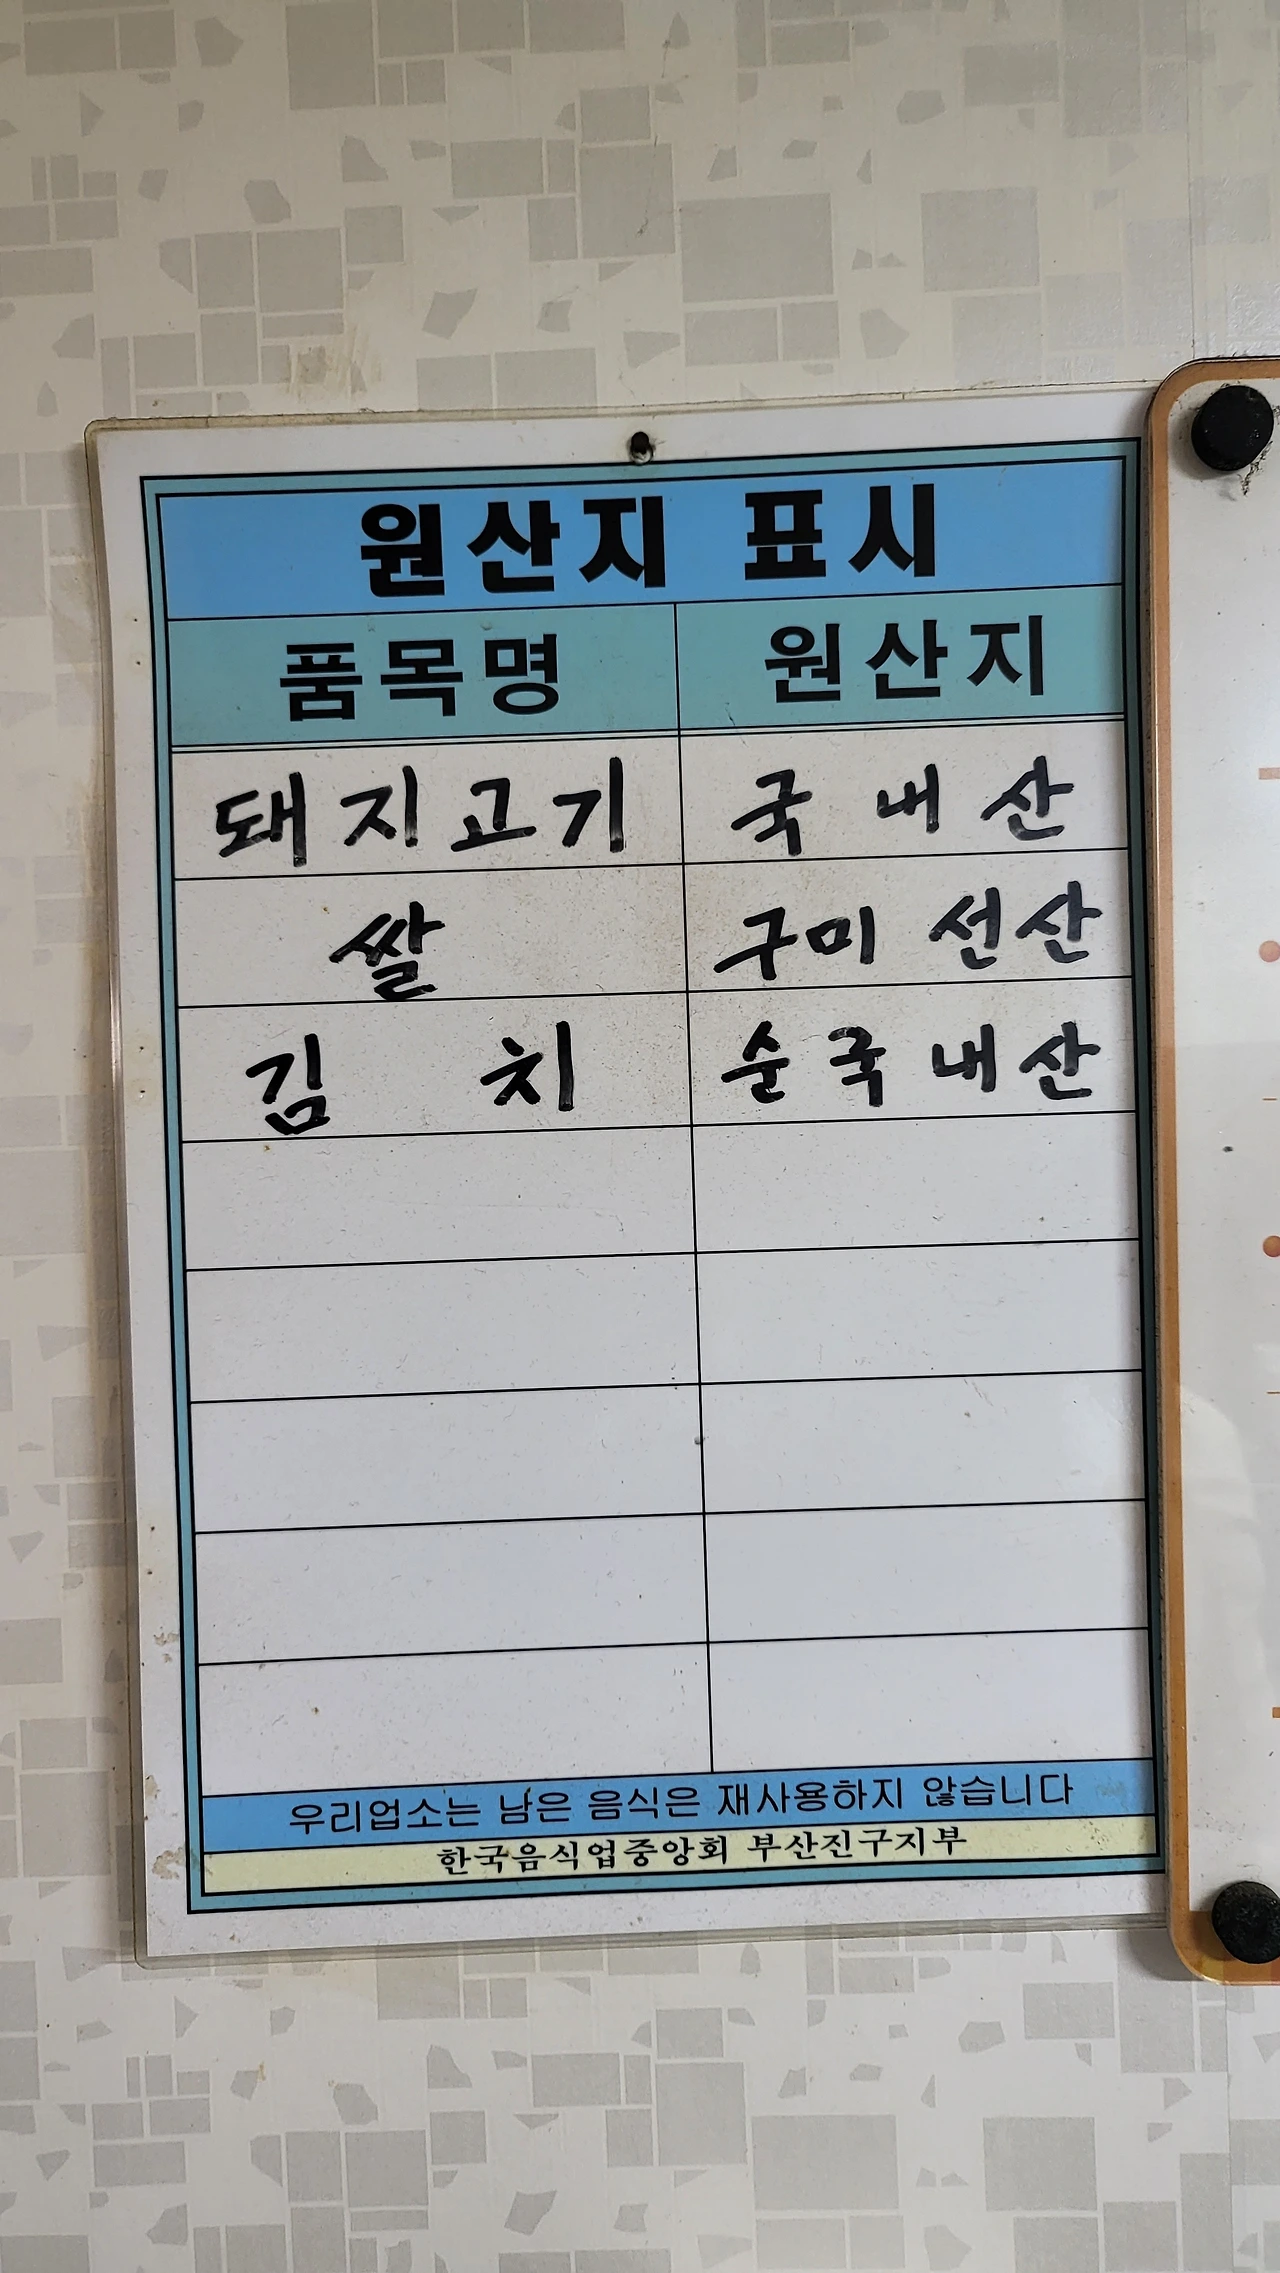 원산지 표시
품목명 원산지
돼지고기 국내산
쌀 구미 선산
김치 순국내산
우리업소는 남은 음식은 재사용하지 않습니다
한국음식업중앙회 부산진구지부